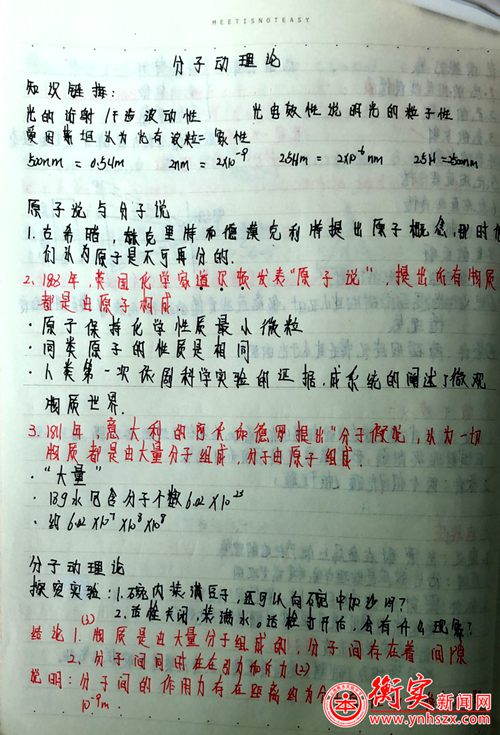 MEETISNOTEASY
分子动理论
知识链接:
光的衍射 干涉 波动性 光电效性说明光的粒子性
爱因斯坦认为光有波粒二象性
500nm = 0.5μm 2nm = 2×10⁻⁹ 2.5μm = 2500nm
原子说与分子说
1. 古希腊,赫克里特和德谟克利特提出原子概念,那时
们认为原子是不可再分的.
2. 1803年,英国化学家道尔顿发表“原子说”,提出所有物质
都是由原子构成
·原子保持化学性质最小微粒
·同类原子的性质是相同
·人类第一次依剧科学实验的证据,成系统的阐述了微观
物质世界.
3. 1811年,意大利的阿伏加德罗提出“分子假说,认为一切
物质都是由大量分子组成,分子由原子组成.
·“大量”
水包含分子个数 6.02×10²³
·约 6.02×10⁷×10⁸×10⁸
分子动理论
探究实验: 1.碗内装满豆子,还可以向碗中加沙吗?
2.活栓关闭,装满水。活栓打开后,会有什么现象?
结论 1. 物质是由大量分子组成的,(3)分子间存在着间隙
2. 分子间同时存在引力和斥力(2)
说明:分子间的作用力存在距离约为
10⁻⁹m.
衡实新闻网
www.ynhszx.com